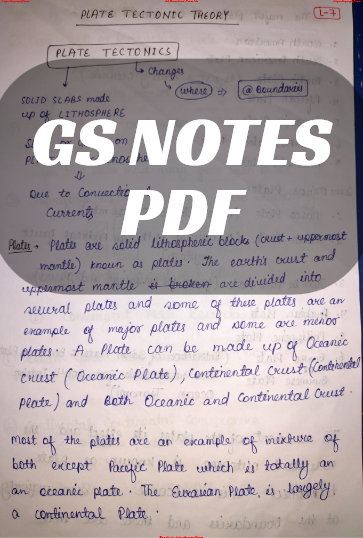 PLATE TECTONIC THEORY
L-7
PLATE TECTONICS
changes
where ⇒ @ Boundaries
SOLID SLABS made
up of LITHOSPHERE
GS NOTES
PDF
Due to Convection
Currents
Plates → Plates are solid lithospheric blocks (crust + uppermost
mantle) known as plates. The earth's crust and
uppermost mantle is broken are divided into
several plates and some of these plates are an
example of major plates and some are minor
plates. A Plate can be made up of Oceanic
crust (Oceanic Plate), Continental Crust (Continental
Plate) and Both Oceanic and Continental Crust.
Most of the plates are an example of mixture of
both except Pacific Plate which is totally an
an oceanic plate. The Eurasian Plate is largely
a continental Plate.